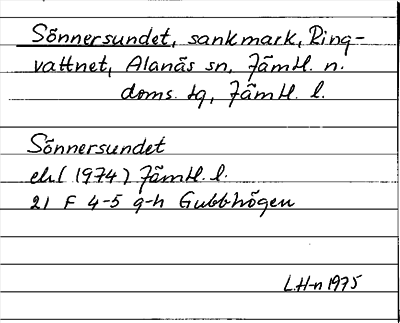 Sönnersundet, sankmark, Ring-
vattnet, Alanäs sn, Jämtl. n.
doms. tg, Jämtl. l.
Sönnersundet
ek (1974) Jämtl. l.
21 F 4-5 g-h Gubbhögen
L.H-n 1975